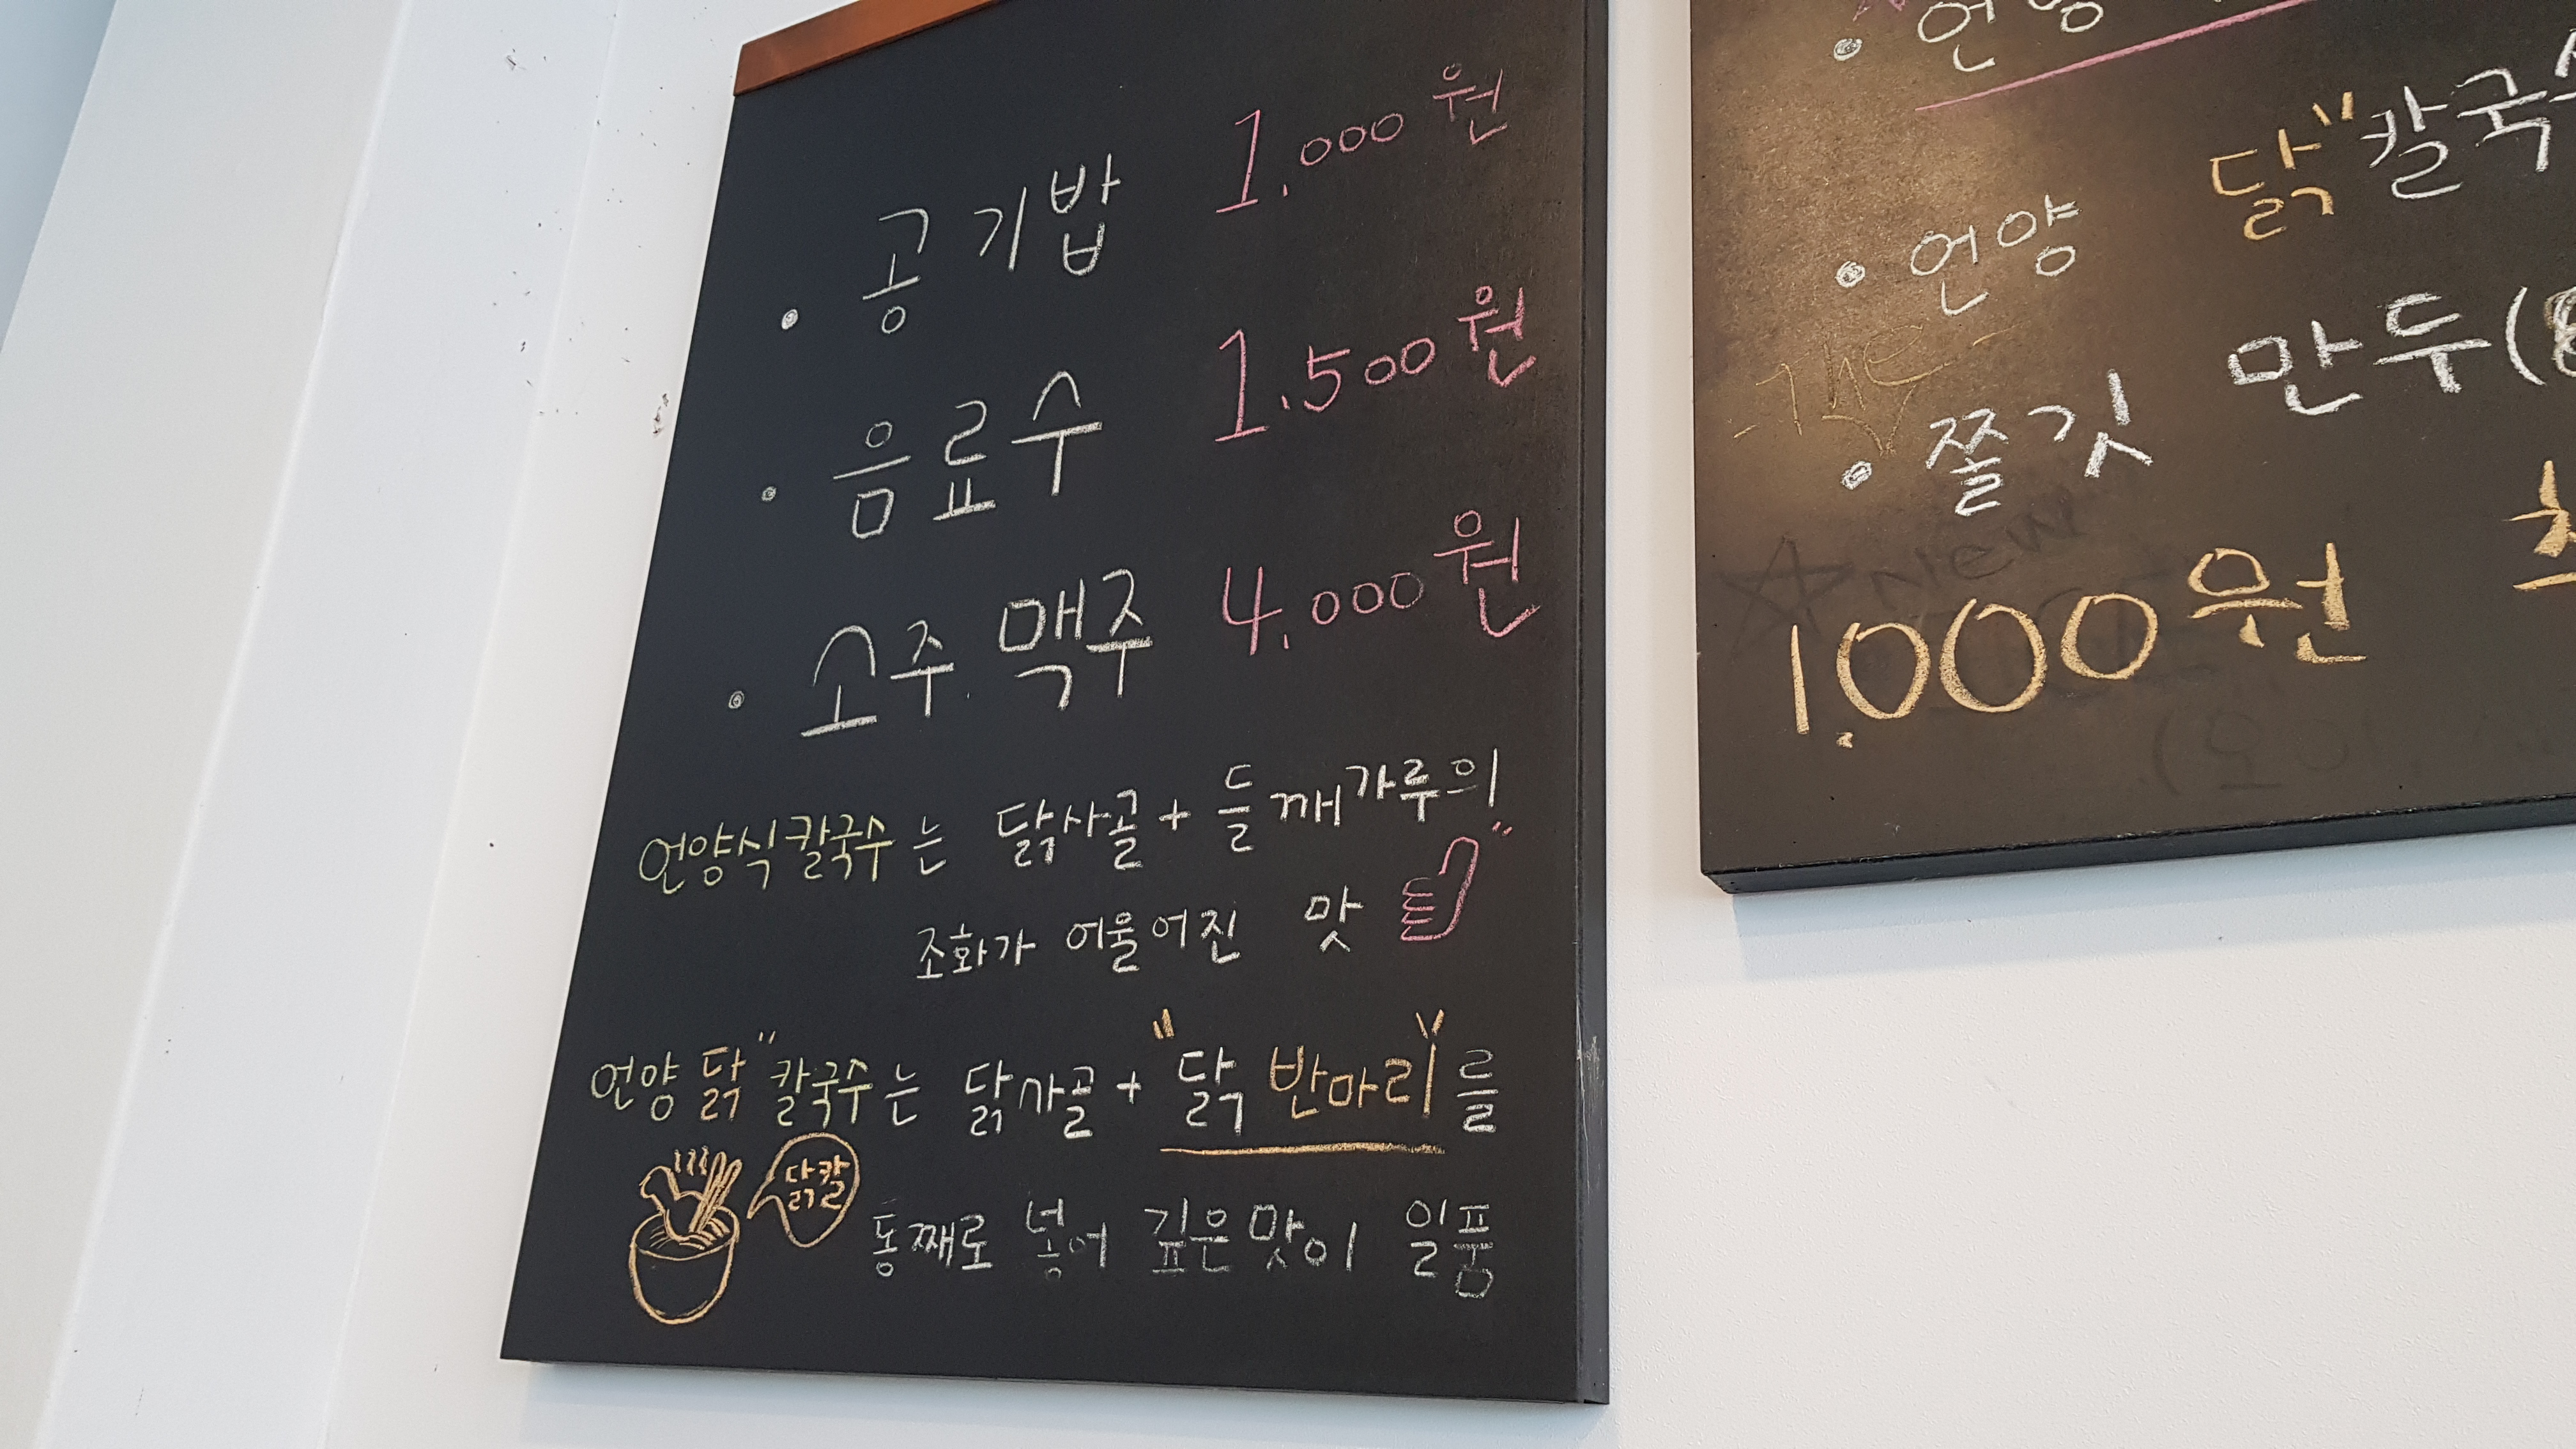 • 공기밥 1.000원
• 음료수 1.500원
• 소주. 맥주 4.000원
언양식칼국수는 닭사골 + 들깨가루의
조화가 어울어진 맛
언양 닭"칼국수는 닭사골 + "닭 반마리"를
닭칼
통째로 넣어 깊은맛이 일품
• 언양
• 언양 닭"칼국수
• 쫄깃 만두(8
NEW
1.000원